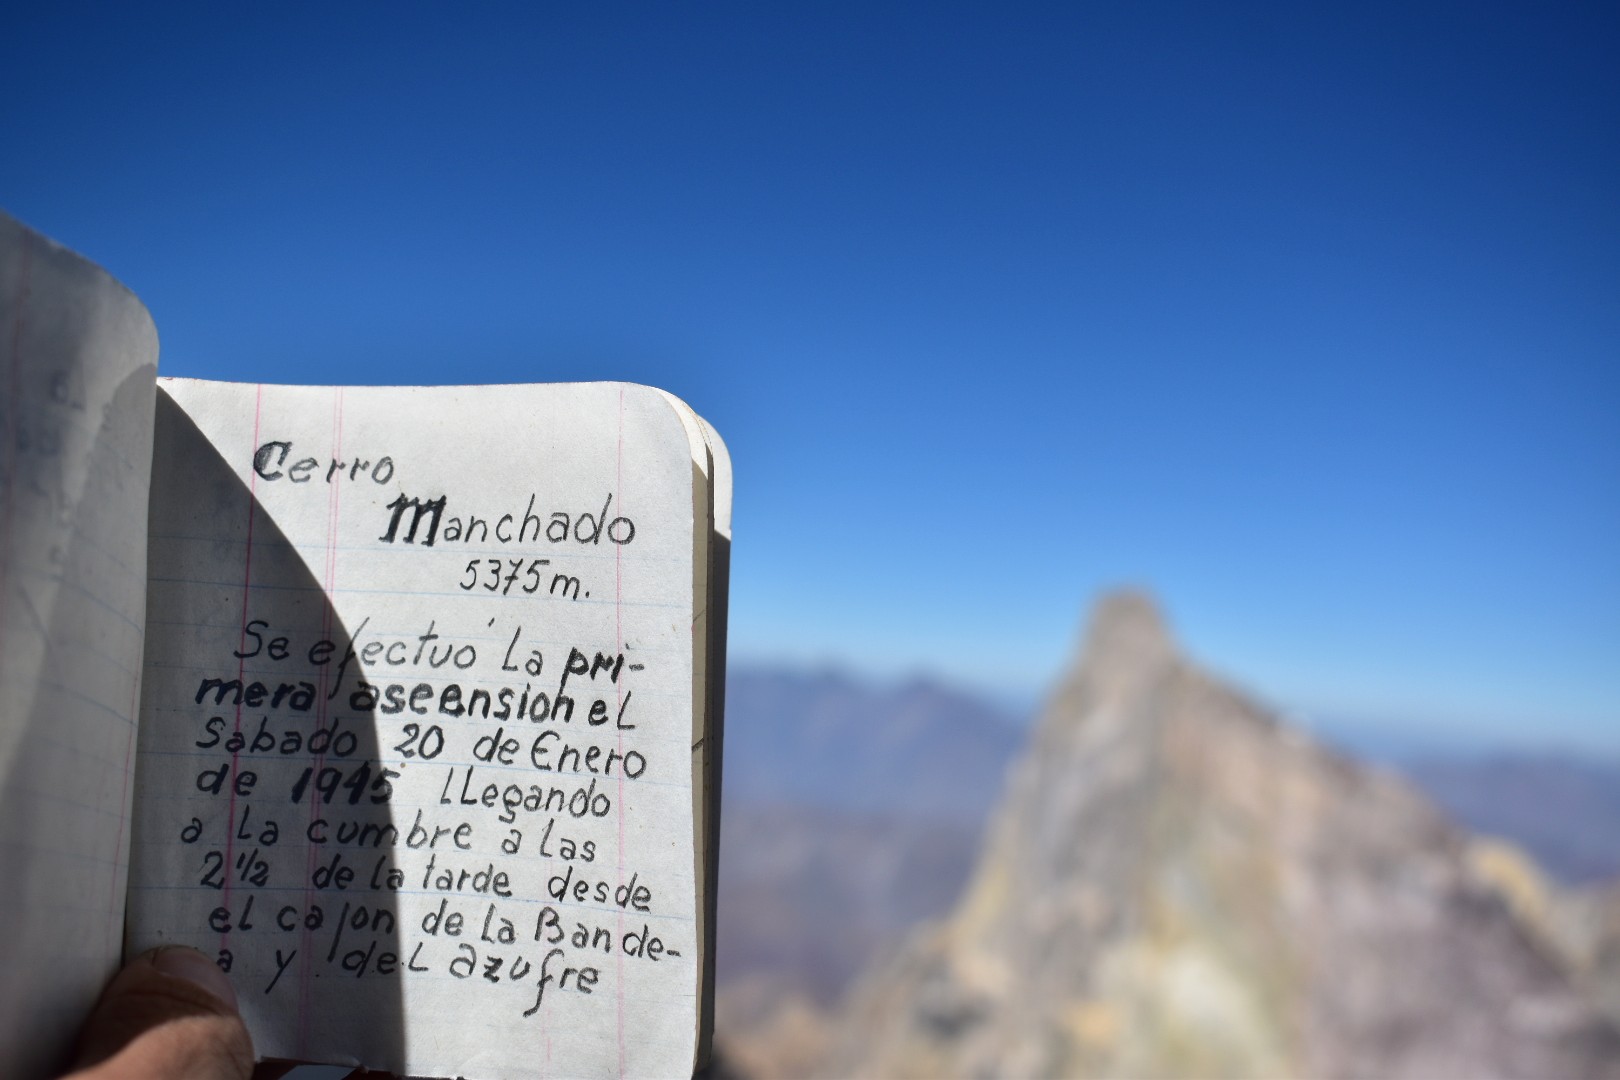 Cerro
Manchado
5375 m.
Se efectuó La pri-
mera aseension el
Sabado 20 de Enero
de 1945 LLegando
a La cumbre a las
2 1/2 de la tarde desde
el cajon de la Bande-
a y del azufre